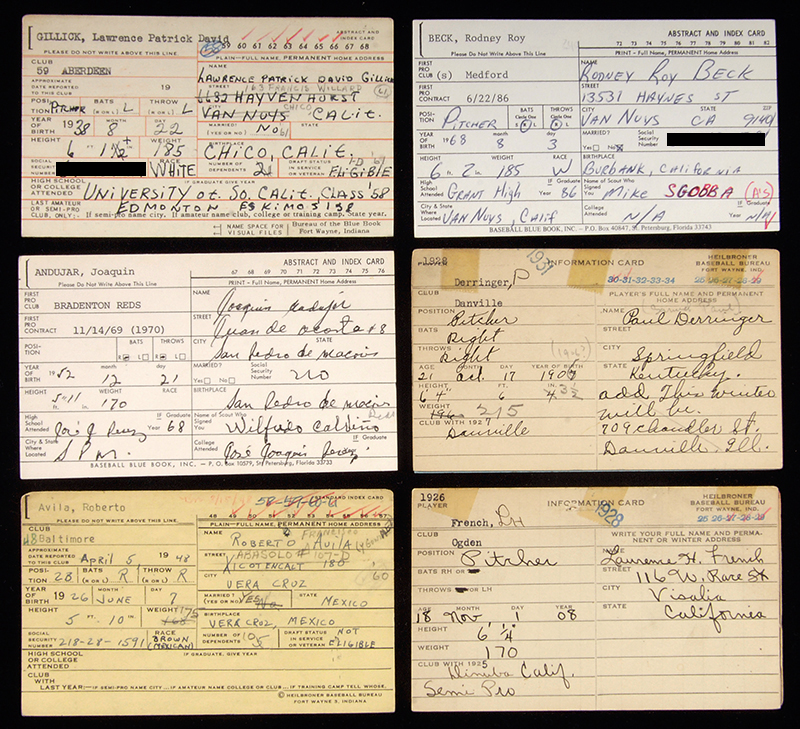 GILLICK, Lawrence Patrick David
ABSTRACT AND INDEX CARD
PLEASE DO NOT WRITE ABOVE THIS LINE.
59 60 61 62 63 64 65 66 67 68
PLAIN—FULL NAME, PERMANENT HOME ADDRESS
CLUB
59 ABERDEEN
NAME
LAWRENCE PATRICK DAVID GILLICK
APPROXIMATE DATE REPORTED TO THIS CLUB 19
163 FRANCIS WILLARD
STREET
6632 HAYVENHURST
POSITION PITCHER BATS (R OR L) L THROWS (R OR L) L
CHICO
CITY VAN NUYS STATE CALIF.
YEAR OF BIRTH 1938 MONTH 8 DAY 22
MARRIED? (YES OR NO) NO
HEIGHT 6 FT. 1 1/2 IN. WEIGHT 185
BIRTHPLACE CHICO, CALIF.
SOCIAL SECURITY NUMBER RACE WHITE
NUMBER OF DEPENDENTS 2 DRAFT STATUS IN SERVICE OR VETERAN 1-D ELIGIBLE
HIGH SCHOOL OR COLLEGE ATTENDED IF GRADUATE GIVE YEAR
UNIVERSITY of. SO. CALIF. CLASS '58
LAST AMATEUR OR SEMI-PRO CLUB, ONLY: EDMONTON ESKIMOS '58
If semi-pro name city. If amateur name club, college or training camp. State year.
NAME SPACE FOR VISUAL FILES
Bureau of the Blue Book
Fort Wayne, Indiana
BECK, Rodney Roy
ABSTRACT AND INDEX CARD
Please Do Not Write Above This Line
72 73 74 75 76 77 78 79 80 81 82
PRINT - Full Name, PERMANENT Home Address
FIRST PRO CLUB (s) Medford
NAME RODNEY ROY BECK
FIRST PRO CONTRACT 6/22/86
STREET 13531 HAYNES ST
POSITION PITCHER BATS Circle One R L THROWS Circle One R L
CITY VAN NUYS STATE CA ZIP 91401
YEAR OF BIRTH 1968 month 8 day 3
MARRIED? Yes No Social Security Number
HEIGHT 6 ft. 2 in. WEIGHT 185 RACE W
BIRTHPLACE BURBANK, CALIFORNIA
High School Attended GRANT HIGH IF Graduate Year 86
Name of Scout Who Signed You MIKE SGOBBA (A'S)
City & State Where Located VAN NUYS, CALIF
College Attended N/A IF Graduate Year N/A
BASEBALL BLUE BOOK, INC. - P.O. Box 40847, St. Petersburg, Florida 33743
ANDUJAR, Joaquin
ABSTRACT AND INDEX CARD
PLEASE DO NOT WRITE ABOVE THIS LINE.
67 68 69 70 71 72 73 74 75 76
PRINT - Full Name, PERMANENT Home Address
FIRST PRO CLUB BRADENTON REDS
NAME Joaquin Andujar
FIRST PRO CONTRACT 11/14/69 (1970)
STREET Juan de acosta #8
POSITION BATS R L THROWS R L
CITY STATE San Pedro de macoris
YEAR OF BIRTH 1952 month 12 day 21
MARRIED? Yes No Social Security Number no
HEIGHT 5 ft. 11 in. WEIGHT 170 RACE
BIRTHPLACE San Pedro de macoris
High School Attended José J. Perez IF Graduate Year 68
Name of Scout Who Signed You Wilfredo Calviño
City & State Where Located S P M.
College Attended José Joaquin Perez IF Graduate Year
BASEBALL BLUE BOOK, INC. — P.O. Box 10579, St. Petersburg, Florida 33733
1928
PLAYER Derringer, P
1931
INFORMATION CARD
HEILBRONER BASEBALL BUREAU
FORT WAYNE, IND.
30-31-32-33-34
25-26-27-28-29
CLUB Danville
PLAYER'S FULL NAME AND PERMANENT HOME ADDRESS
POSITION Pitcher
NAME Paul Derringer
BATS Right
STREET
THROWS Right
(1967)
CITY Springfield
AGE 21 MONTH Oct. DAY 17 YEAR OF BIRTH 1907
STATE Kentucky.
HEIGHT 6' 4" 6 4 3 1/2
add This winter
WEIGHT 196 215
will be
CLUB WITH 1927 Danville
709 Chandler St.
Danville, Ill.
Avila, Roberto
STANDARD INDEX CARD
58-59-60-61
PLEASE DO NOT WRITE ABOVE THIS LINE.
PLAIN—FULL NAME, PERMANENT HOME ADDRESS
CLUB
48 Baltimore
FRANCISCO
NAME ROBERTO AVILA
APPROXIMATE DATE REPORTED TO CLUB April 5 1948
ABASOLO # 107-D
STREET XICOTENCALT 180
POSITION 2B BATS (R OR L) R THROWS (R OR L) R
CITY VERA CRUZ 60
YEAR OF BIRTH 1926 MONTH JUNE DAY 7
MARRIED? (YES OR NO) YES No STATE MEXICO
HEIGHT 5 FT. 10 IN. WEIGHT 168 175
BIRTHPLACE VERA CRUZ, MEXICO
SOCIAL SECURITY NUMBER 218-28-1591 RACE BROWN (MEXICAN)
NUMBER OF DEPENDENTS 5 DRAFT STATUS IN SERVICE OR VETERAN NOT ELIGIBLE
HIGH SCHOOL OR COLLEGE ATTENDED IF GRADUATE, GIVE YEAR
CLUB WITH LAST YEAR—IF SEMI-PRO NAME CITY ... IF AMATEUR NAME COLLEGE OR CLUB ... IF TRAINING CAMP TELL WHOSE.
© HEILBRONER BASEBALL BUREAU
FORT WAYNE 2, INDIANA
1926
PLAYER French, LH
INFORMATION CARD
1928
HEILBRONER BASEBALL BUREAU
FORT WAYNE, IND.
25-26-27-28-29
CLUB Ogden
WRITE YOUR FULL NAME AND PERMANENT OR WINTER ADDRESS
POSITION Pitcher
NAME Laurence H. French
BATS RH OR
STREET 116 W. Race St
THROWS OR LH
CITY Visalia
AGE 18 MONTH Nov DAY 1 YEAR 08
STATE California
HEIGHT 6' 1/4"
WEIGHT 170
CLUB WITH 1925 Dinuba Calif.
Semi Pro